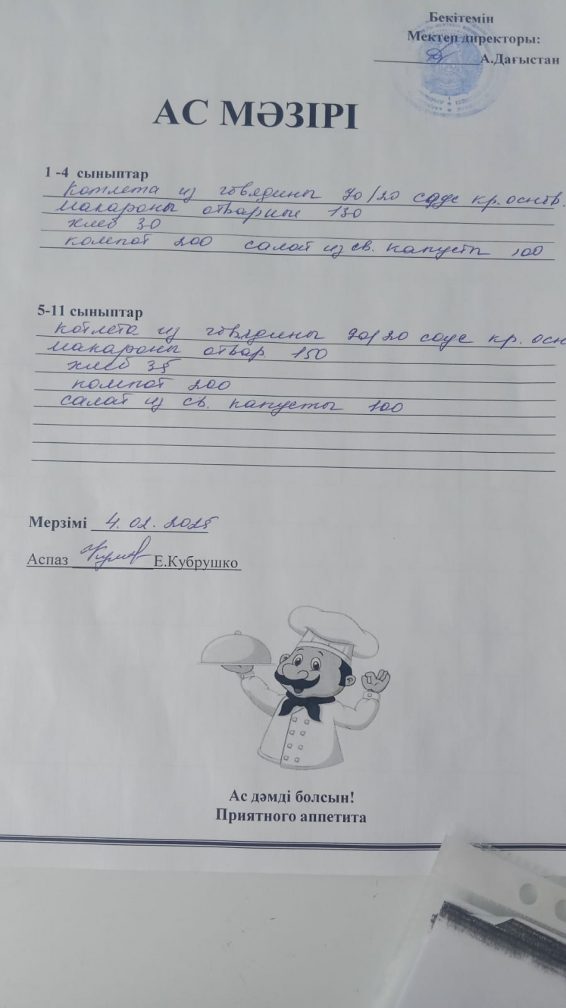 Бекітемін
Мектеп директоры:
А.Дағыстан
АС МӘЗІРІ
1 -4 сыныптар
Котлета из говядины 70/20 соус кр. оснв.
макароны отварные 130
хлеб 30
компот 200 салат из св. капусты 100
5-11 сыныптар
котлета из говядины 90/20 соус кр. осн
макароны отвар 150
хлеб 35
компот 200
салат из св. капусты 100
Мерзімі 4.02.2025
Аспаз Е.Кубрушко
Ас дәмді болсын!
Приятного аппетита